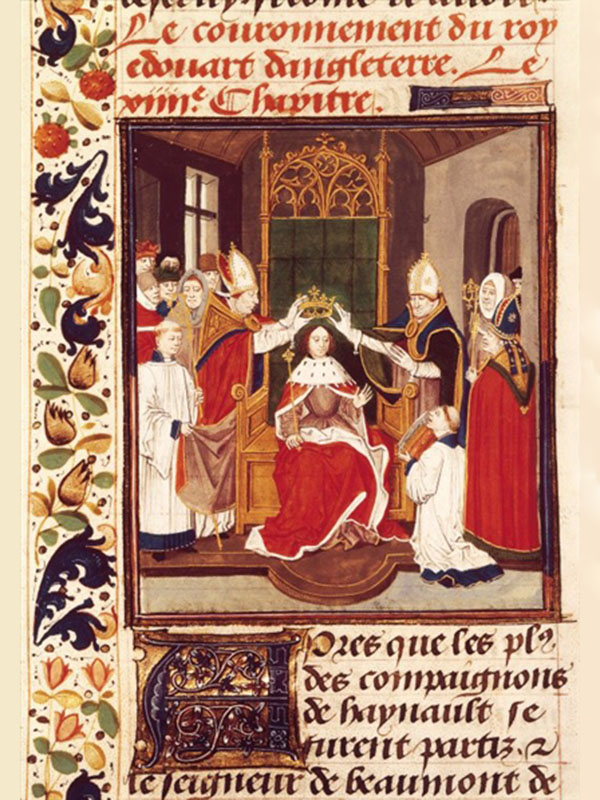 Le couronnement du roy
edouart dangleterre. Le
Chapitre.
Apres que les plꝰ
des compaignons
de haynault se
furent partiz. ⁊
le seigneur de beaumont de